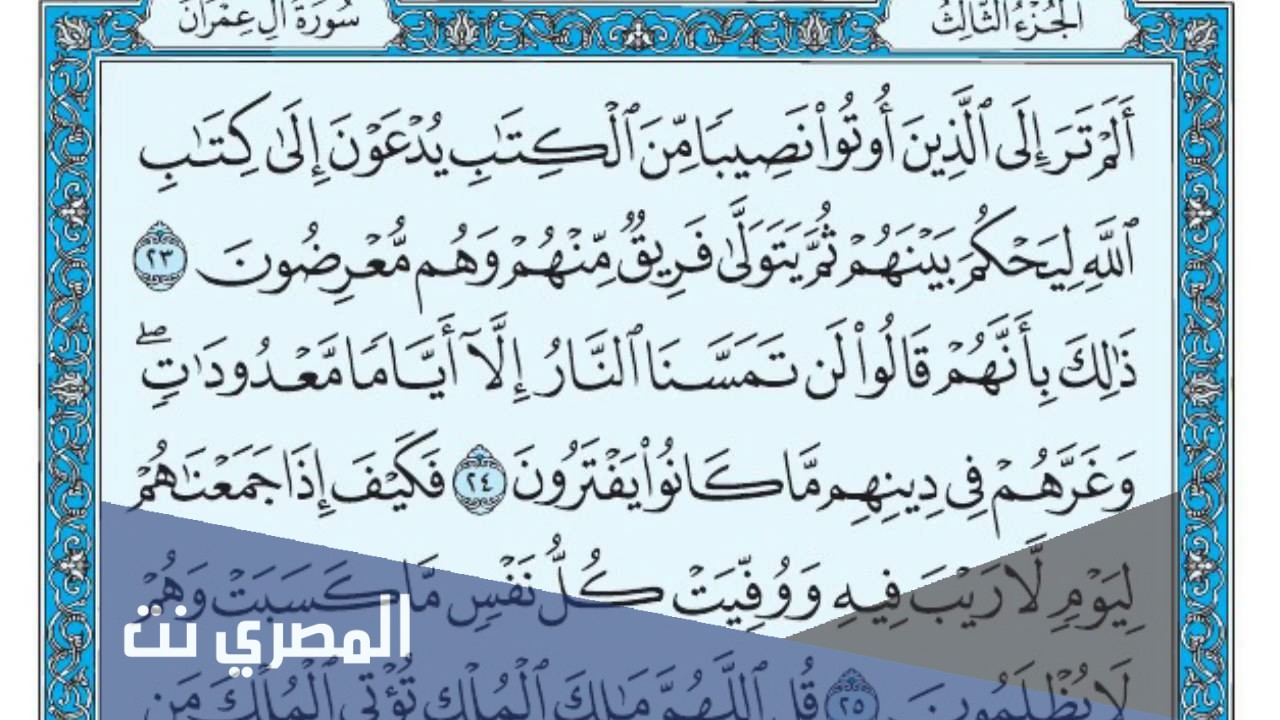 الجُزْءُ الثَّالِثُ
سُورَةُ آلِ عِمْرَانَ
أَلَمْ تَرَ إِلَى ٱلَّذِينَ أُوتُوا۟ نَصِيبًا مِّنَ ٱلْكِتَٰبِ يُدْعَوْنَ إِلَىٰ كِتَٰبِ
ٱللَّهِ لِيَحْكُمَ بَيْنَهُمْ ثُمَّ يَتَوَلَّىٰ فَرِيقٌ مِّنْهُمْ وَهُم مُّعْرِضُونَ ٢٣
ذَٰلِكَ بِأَنَّهُمْ قَالُوا۟ لَن تَمَسَّنَا ٱلنَّارُ إِلَّآ أَيَّامًا مَّعْدُودَٰتٍ ۖ
وَغَرَّهُمْ فِى دِينِهِم مَّا كَانُوا۟ يَفْتَرُونَ ٢٤ فَكَيْفَ إِذَا جَمَعْنَٰهُمْ
لِيَوْمٍ لَّا رَيْبَ فِيهِ وَوُفِّيَتْ كُلُّ نَفْسٍ مَّا كَسَبَتْ وَهُمْ
المصري نت
لَا يُظْلَمُونَ ٢٥ قُلِ ٱللَّهُمَّ مَٰلِكَ ٱلْمُلْكِ تُؤْتِى ٱلْمُلْكَ مَن